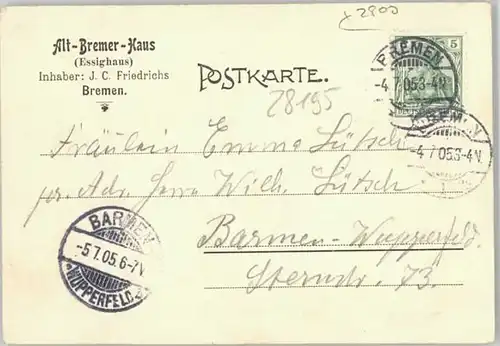 x 2900
Alt-Bremer-Haus
(Essighaus)
Inhaber: J. C. Friedrichs
Bremen.
POSTKARTE.
28195
5
BREMEN
-4.7.05.3-4N
BREMEN
-4.7.05.3-4V
Fräulein Emma Lütsch
pr. Adr. Herrn Wilh. Lütsch
Barmen-Wupperfeld.
Sternstr. 73.
BARMEN
-5.7.05.6-7V
WUPPERFELD